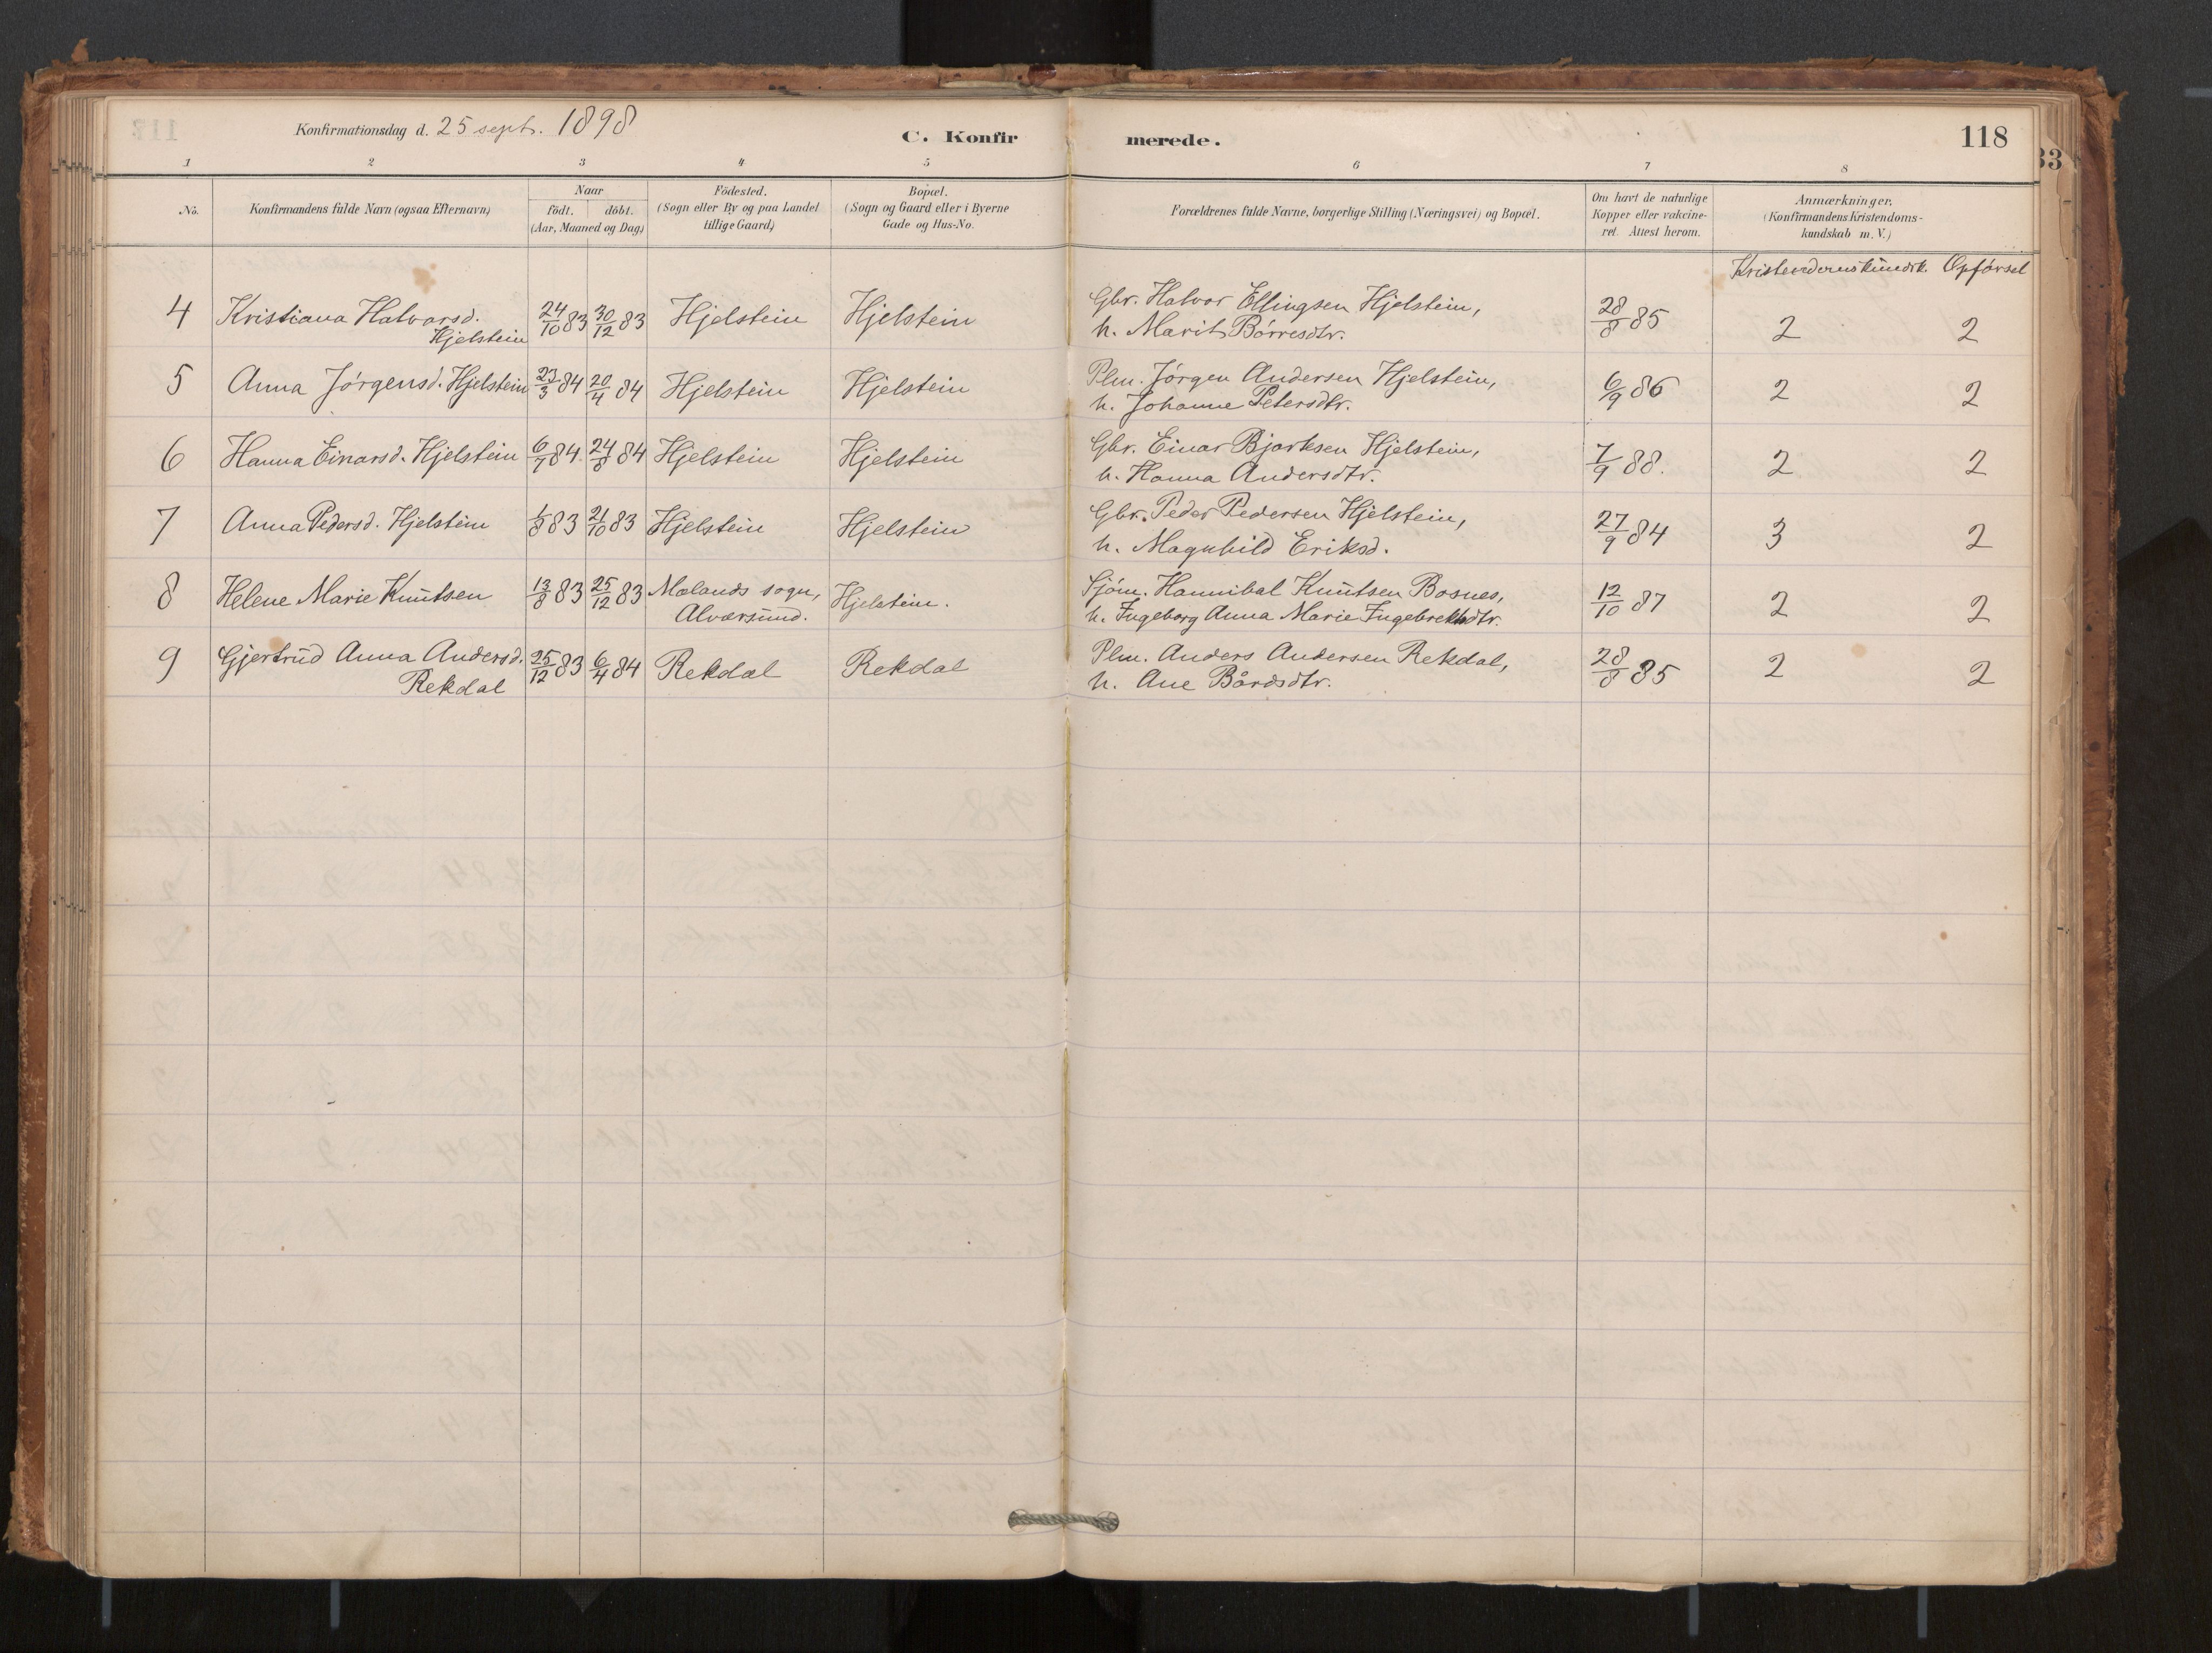 Konfirmationsdag d. 25 sept. 1898
C. Konfir
merede.
118
33
1 2 3 4 5 6 7 8
No.
Konfirmandens fulde Navn (ogsaa Efternavn)
Naar
födt. döbt.
(Aar, Maaned og Dag)
Födested.
(Sogn eller By og paa Landet
tillige Gaard)
Bopæl.
(Sogn og Gaard eller i Byerne
Gade og Hus-No.
Forældrenes fulde Navne, borgerlige Stilling (Næringsvei) og Bopæl.
Om havt de naturlige
Kopper eller vakcine-
ret. Attest herom.
Anmærkninger.
(Konfirmandens Kristendoms-
kundskab m. V.)
Kristendomskundsk. Opførsel
4 Kristiana Halvorsd. 24/10 83 30/12 83 Hjelstein Hjelstein Gbr. Halvor Ellingsen Hjelstein, 28/8 85 2 2
Hjelstein h. Marit Börresdtr.
5 Anna Jörgensd. Hjelstein 23/3 84 20/4 84 Hjelstein Hjelstein Plm. Jörgen Andersen Hjelstein, 6/9 86 2 2
h. Johanne Petersdtr.
6 Hanna Einarsd. Hjelstein 6/7 84. 24/8 84 Hjelstein Hjelstein Gbr. Einar Bjartesen Hjelstein, 7/9 88. 2 2
h. Hanna Andersdtr.
7 Anna Pedersd. Hjelstein 1/8 83 21/10 83 Hjelstein Hjelstein Gbr. Peder Pedersen Hjelstein, 27/9 84 3 2
h. Magnhild Eriksd.
8 Helene Marie Knutsen 13/8 83 25/12 83 Mælands sogn, Hjelstein. Sjöm. Hannibal Knutsen Bosnes, 12/10 87 2 2
Alversund. h. Ingeborg Anna Marie Ingebrektsdtr.
9 Gjertrud Anna Andersd. 25/12 83 6/4 84 Rekdal Rekdal Plm. Anders Andersen Rekdal, 28/8 85 2 2
Rekdal h. Ane Bårdsdtr.